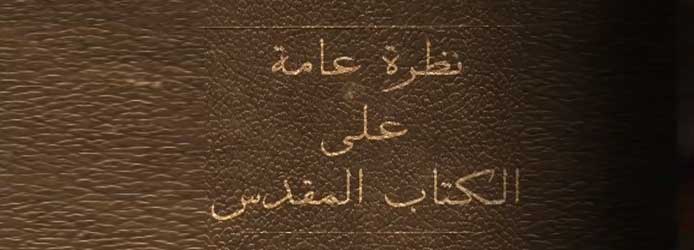 نظرة عامة
على
الكتاب المقدس